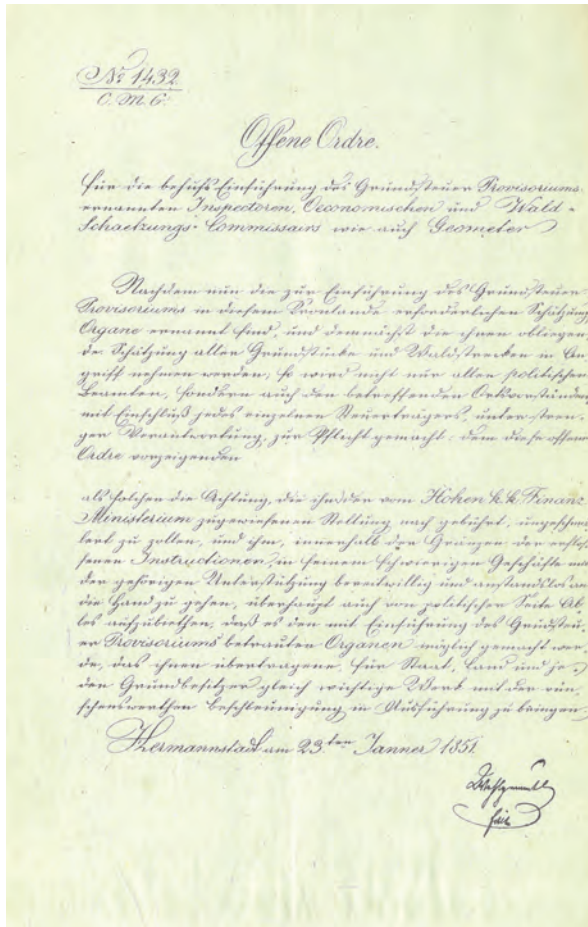 No 1432.
C. M. G.
Offene Ordre.
Für die behufs Einführung des Grundsteuer Provisoriums
ernannten Inspectoren, Oeconomischen und Wald-
Schaetzungs-Commissairs wie auch Geometer
Nachdem nun die zur Einführung des Grundsteuer
Provisoriums in diesem Kronlande erforderlichen Schätzung
Organe ernannt sind, und demnächst die ihnen obliegen
de Schätzung aller Grundstücke und Waldstrecken in An
griff nehmen werden, so wird nicht nur allen politischen
Beamten, sondern auch den betreffenden Ortsvorständen
mit Einschluß jedes einzelnen Steuerträgers, unter stren-
ger Verantwortung zur Pflicht gemacht: dem diese offene
Ordre vorzeigenden
als solchen die Achtung, die ihm der vom Hohen k.k. Finanz
Ministerium zugewiesenen Stellung nach gebührt, ungeschmä
lert zu zollen, und ihm, innerhalb der Gränzen der erflos
senen Instructionen, in seinem schwierigen Geschäfte mit
der gehörigen Unterstützung bereitwillig und anstandslos an
die Hand zu gehen, überhaupt auch von politischer Seite Al
les aufzubiethen, daß es den mit Einführung des Grundsteu,
er Provisoriums betrauten Organen möglich gemacht wer,
de, das ihnen übertragene, für Staat, Land und je
den Grundbesitzer gleich wichtige Werk mit der wün
schenswerthen Beschleunigung in Ausführung zu bringen.
Hermannstadt am 23.ten Jänner 1851.